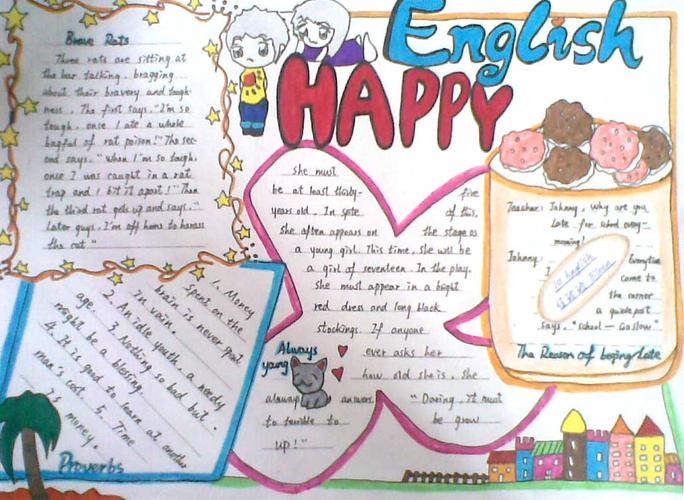 English
HAPPY
Brave Rats
Three rats are sitting at
the bar talking, bragging
about their bravery and tough-
ness. The first says. "I'm so
tough, once I ate a whole
bagful of rat poison!" The sec-
ond says. "When I'm so tough,
once I was caught in a rat
trap and I bit it apart!" Then
the third rat gets up and says. "
Later guys. I'm off home to harass
the cat."
1. Money
spent on the
brain is never spent
in vain.
2. An idle youth, a needy
age.
3. Nothing so bad but
might be a blessing.
4. It is good to learn at another
man's cost.
5. Time
Is money.
Proverbs
She must
be at least thirty-five
years old. In spite of this,
she often appears on the stage as
a young girl. This time, she will be
a girl of seventeen. In the play,
she must appear in a bright
red dress and long black
stockings. If anyone
ever asks her
how old she is, she
always answers. "Daring, it must
to terrible to be grow
up!"
Always
yang
Teacher: Johnny, why are you
late for school every-
morning?
Johnny: Everytime
I come to
the corner
a guide post
says, "School — Go slow"
The Reason of beging Late